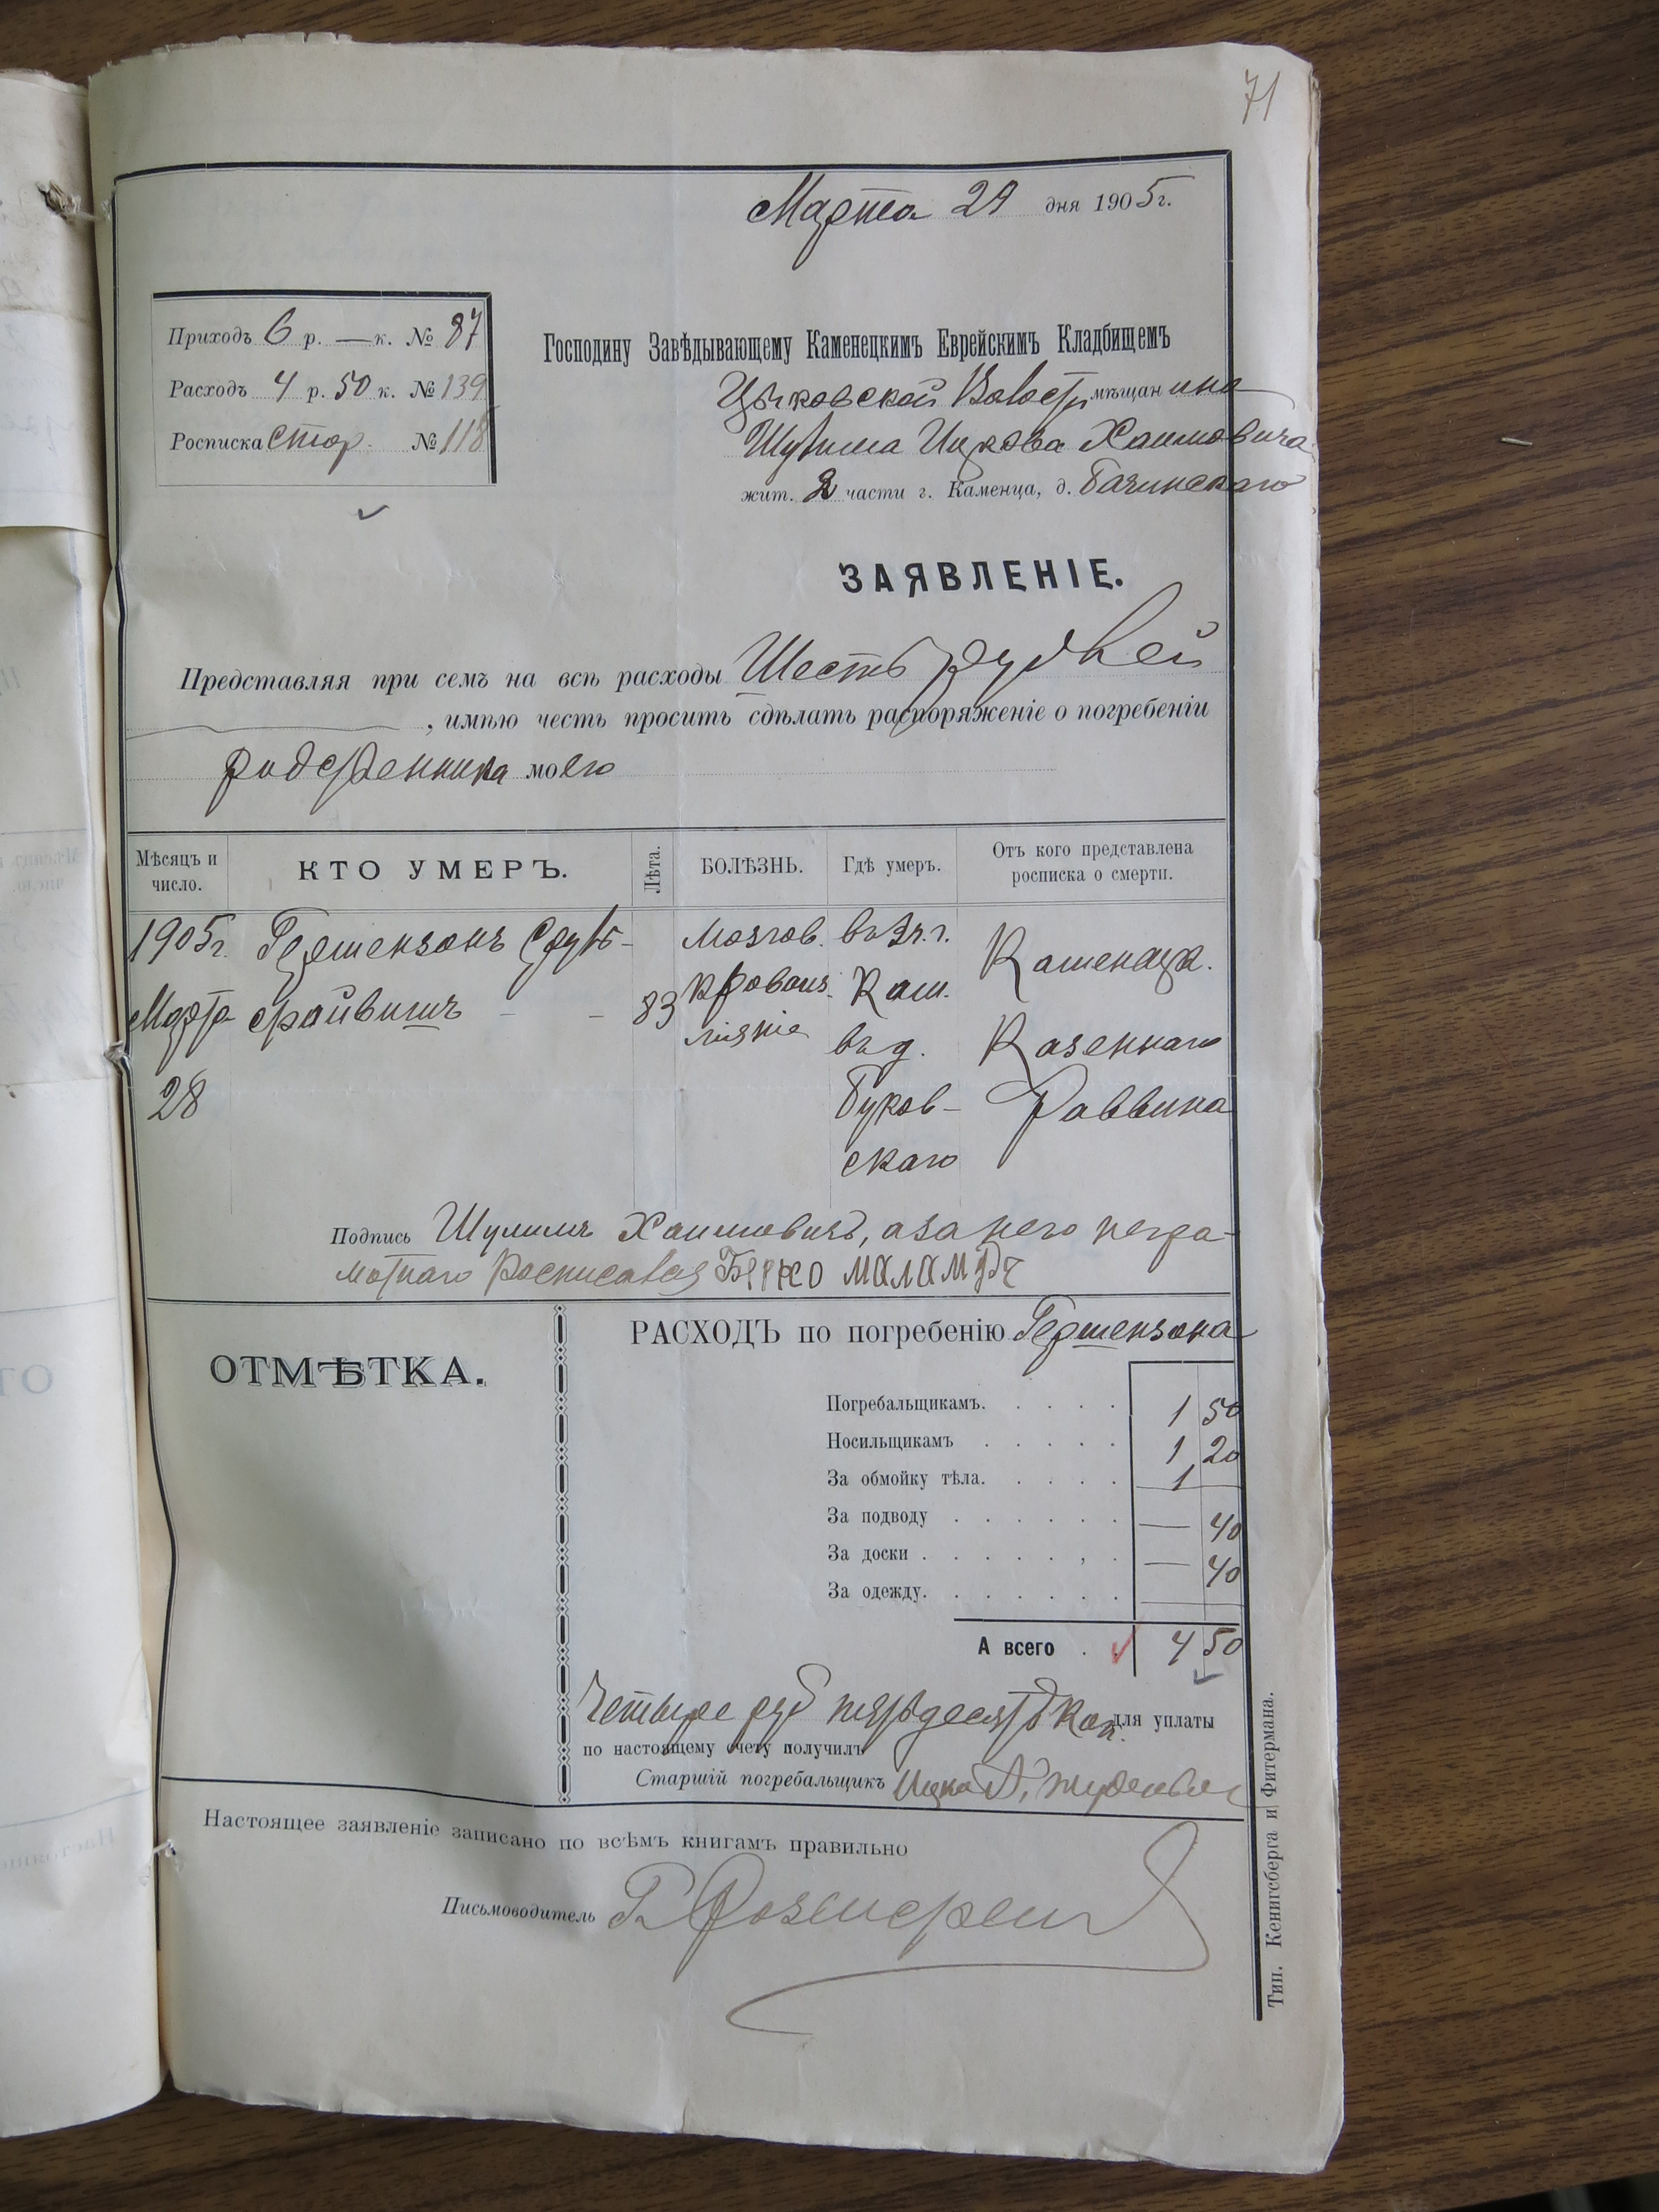 71
Марта 29 дня 1905 г.
Приходъ 6 р. — к. № 87
Расходъ 4 р. 50 к. № 139
Росписка стор. № 118
Господину Завѣдывающему Каменецкимъ Еврейскимъ Кладбищемъ
Цыковской Волости мѣщанина
Шулима Ицкова Хаимовича
жит. 2 части г. Каменца, д. Бачинскаго
ЗАЯВЛЕНІЕ.
Представляя при семъ на всѣ расходы Шесть рублей
, имѣю честь просить сдѣлать распоряженіе о погребеніи
родственника моего
Мѣсяцъ и число.
КТО УМЕРЪ.
Лѣта.
БОЛѢЗНЬ.
Гдѣ умеръ.
Отъ кого представлена росписка о смерти.
1905 г. Гершензонъ Сруль- мозгов. въ г. Каменецк.
Март срайвишъ - - 83 кровоиз. Кам.
лiянiе въ д. Казеннаго
28 Буков- Раввина
скаго
Подпись Шулимъ Хаимовичъ, а за него негра-
мотнаго Росписался Берко МАЛАМУДЪ
ОТМѢТКА.
РАСХОДЪ по погребенію Гершензона
Погребальщикамъ. 1 50
Носильщикамъ 1 20
За обмойку тѣла. 1 —
За подводу — 40
За доски — 40
За одежду.
А всего 4 50
Четыре руб пятьдесятъ коп. для уплаты
по настоящему счету получилъ
Старшій погребальщикъ Ицко
Настоящее заявленіе записано по всѣмъ книгамъ правильно
Письмоводитель
Тип. Кенигсберга и Фитермана.